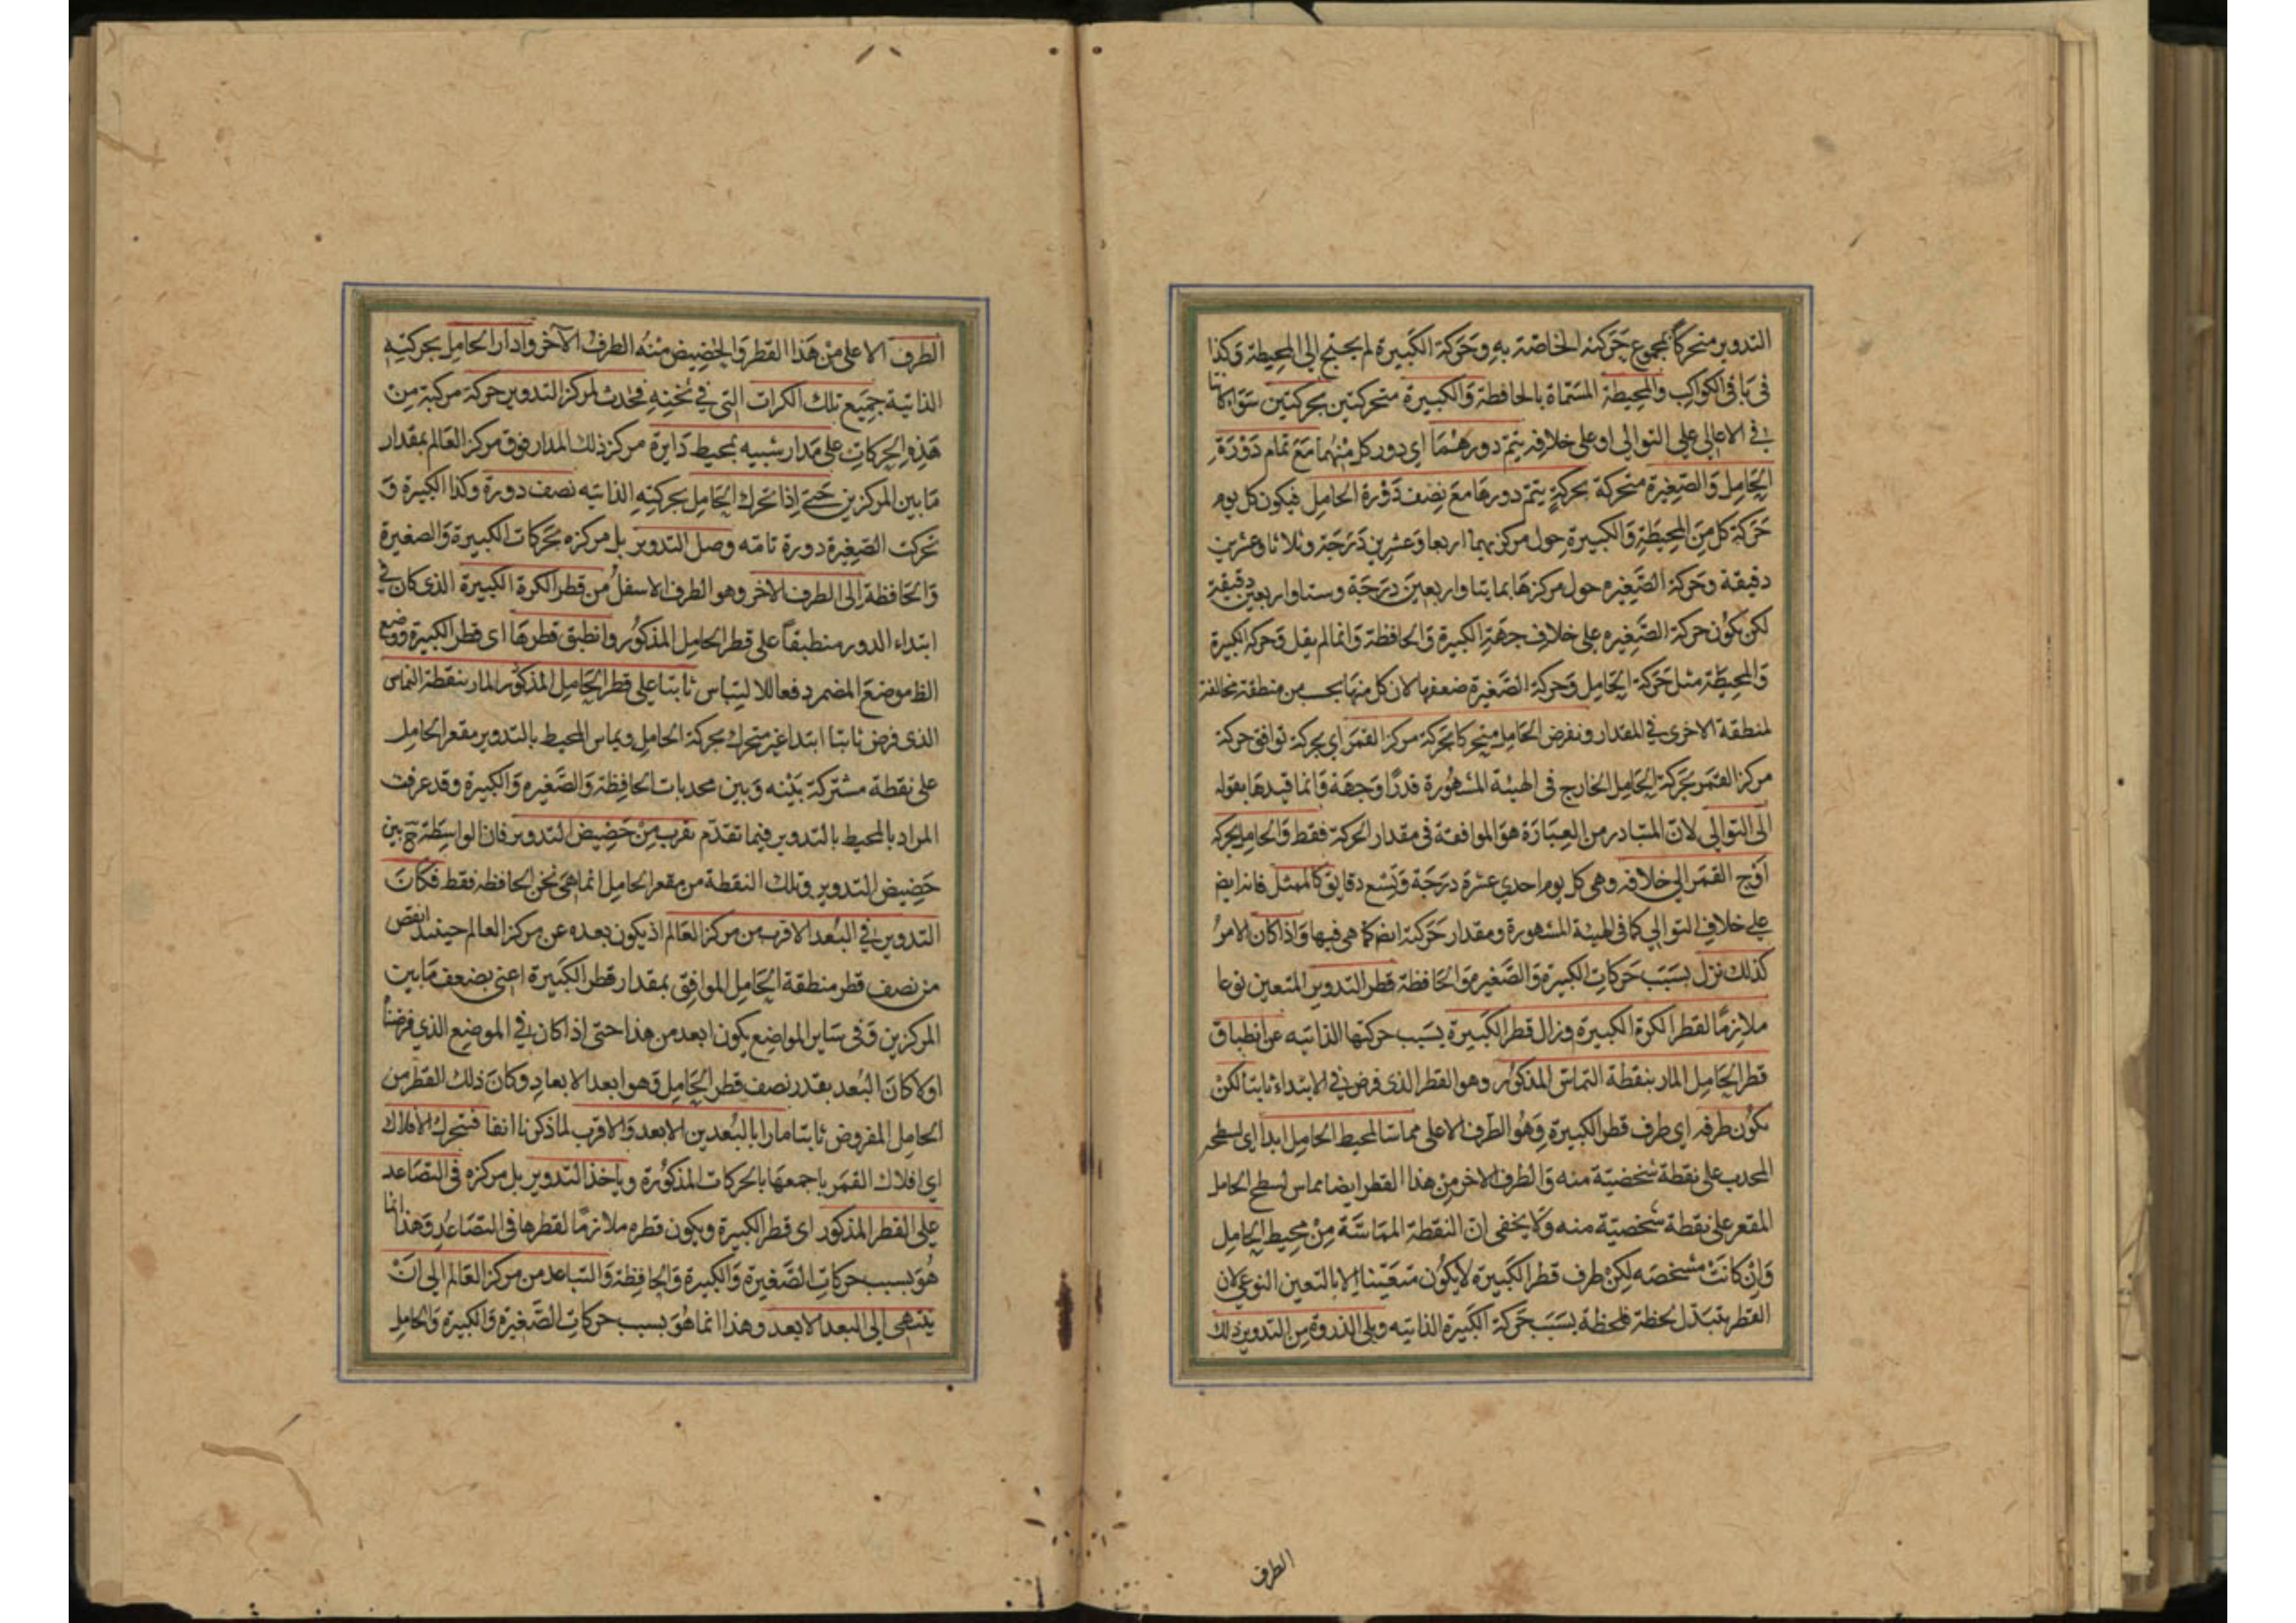 التدوير متحركاً بمجموع حركته الخاصة به وحركة الكبيرة لم يحتج الى المحيطة وكذا
فى باقى الكواكب والمحيطة المسماة بالحافظة والكبيرة متحركتين بحركتين سواء كانتا
فى الاعالى على التوالى او على خلافه يتم دورهما اى دور كل منهما مع تمام دورة
الحامل والصغيرة متحركة بحركة يتم دورها مع نصف دورة الحامل فيكون كل يوم
حركة كل من المحيطة والكبيرة حول مركزيهما اربعا وعشرين درجة وثلاثا وعشرين
دقيقة وحركة الصغيره حول مركزها بمانيا واربعين درجة وستا واربعين دقيقة
لكن يكون حركة الصغيره على خلاف جهة الكبيرة والحافظة وانما لم يقل وحركة الكبيرة
والمحيطة مثل حركة الحامل وحركة الصغيرة ضعفها لان كل منها بحسب من منطقة مخالفة
لمنطقة الاخرى فى المقدار ونفرض الحامل متحركا بحركة مركز القمر اى بحركة توافق حركة
مركز القمر بحركة الحامل الخارج فى الهيئة المشهورة قدرًا وجهة وانما قيدها بقوله
الى التوالى لان المتبادر من العبارة هو الموافقة فى مقدار الحركة فقط والحامل بحركة
اوج القمر الى خلافه وهى كل يوم احدى عشرة درجة وتسع دقايق كالممثل فانه ايض
على خلاف التوالى كما فى الهيئة المشهورة ومقدار حركته ايض كما هى فيها واذا كان الامر
كذلك نزل بسبب حركات الكبيرة والصغيرة والحافظة قطر التدوير المتعين نوعا
ملازمًا لقطر الكرة الكبيرة وزال قطر الكبيرة بسبب حركتها الذاتيه عن انطباق
قطر الحامل المار بنقطة التماس المذكور وهو القطر الذى فرض فى الابتداء ثابتا لكن
يكون طرفه اى طرف قطر الكبيرة وهو الطرف الاعلى مماسا لمحيط الحامل ابدا اى لسطحه
المحدب على نقطة شخصيّة منه والطرف الاخر من هذا القطر ايضا مماس لسطح الحامل
المقعر على نقطة شخصيّة منه ولا يخفى ان النقطة المماسّة من محيط الحامل
وان كانت مشخصه لكن طرف قطر الكبيرة لا يكون متعيّنا الا بالتعين النوعى لان
القطر يتبدل لحظة فلحظة بسبب حركة الكبيرة الذاتيه ويلى الذروة من التدوير ذلك
الطرف
الطرف الاعلى من هذا القطر والحضيض منه الطرف الآخر وادار الحامل بحركته
الذاتية جميع تلك الكرات التى فى ثخنه فحدث لمركز التدوير حركة مركبة من
هذه الحركات على مدار شبيه بمحيط دايرة مركز ذلك المدار فوق مركز العالم بمقدار
ما بين المركزين حتى اذا تحرك الحامل بحركته الذاتيه نصف دورة وكذا الكبيرة و
تحركت الصغيرة دورة تامّه وصل التدوير بل مركزه بحركات الكبيرة والصغيرة
والحافظة الى الطرف الاخر وهو الطرف الاسفل من قطر الكرة الكبيرة الذى كان فى
ابتداء الدور منطبقاً على قطر الحامل المذكور وانطبق قطرها اى قطر الكبيرة ووضع
الظ موضع المضمر دفعا للالتباس ثابتا على قطر الحامل المذكور المار بنقطة التماس
الذى فرض ثابتا ابتدا غير متحرك بحركة الحامل ويماس المحيط بالتدوير مقعر الحامل
على نقطة مشتركة بينه وبين محدبات الحافظة والصغيره والكبيرة وقد عرفت
المراد بالمحيط بالتدوير فيما تقدّم بقرب من حضيض التدوير فان الواسطة ح بين
حضيض التدوير وتلك النقطة من مقعر الحامل انما هى ثخن الحافظه فقط فكان
التدوير فى البعد الاقرب من مركز العالم اذ يكون بعده عن مركز العالم حينئذ انقص
من نصف قطر منطقة الحامل الموافق بمقدار قطر الكبيرة اعنى بضعف ما بين
المركزين وفى ساير المواضع يكون ابعد من هذا حتى اذا كان فى الموضع الذى فرضناه
اولا كان البعد بقدر نصف قطر الحامل وهو ابعد الابعاد وكان ذلك القطر من
الحامل المفروض ثابتا مارا بالبعدين الابعد والاقرب لما ذكرنا انفا فتتحرك الافلاك
اى افلاك القمر باجمعها بالحركات المذكورة وياخذ التدوير بل مركزه فى التصاعد
على القطر المذكور اى قطر الكبيرة ويكون قطره ملازمًا لقطرها فى التصاعد وهذا انما
هو بسبب حركات الصغيرة والكبيرة والحافظة والتباعد من مركز العالم الى ان
ينتهى الى البعد الابعد وهذا انما هو بسبب حركات الصغيرة والكبيرة والحامل